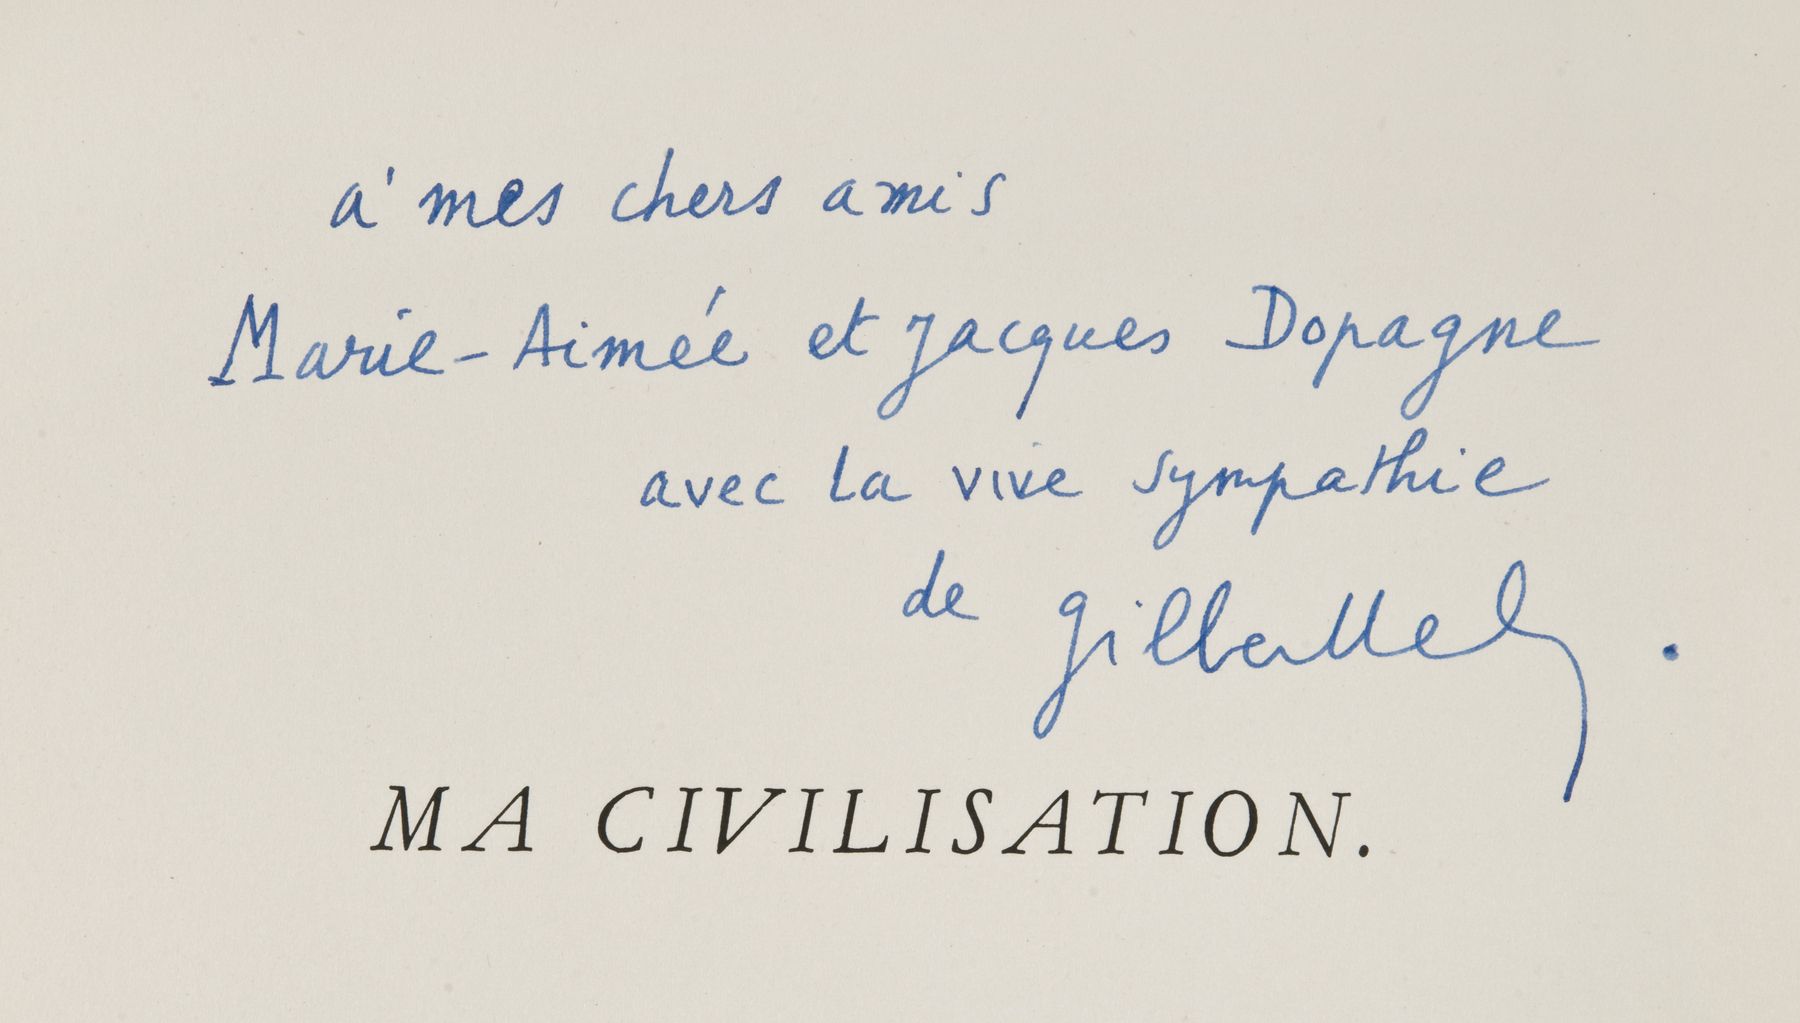 à mes chers amis
Marie-Aimée et Jacques Dopagne
avec la vive sympathie
de Gilberte
MA CIVILISATION.